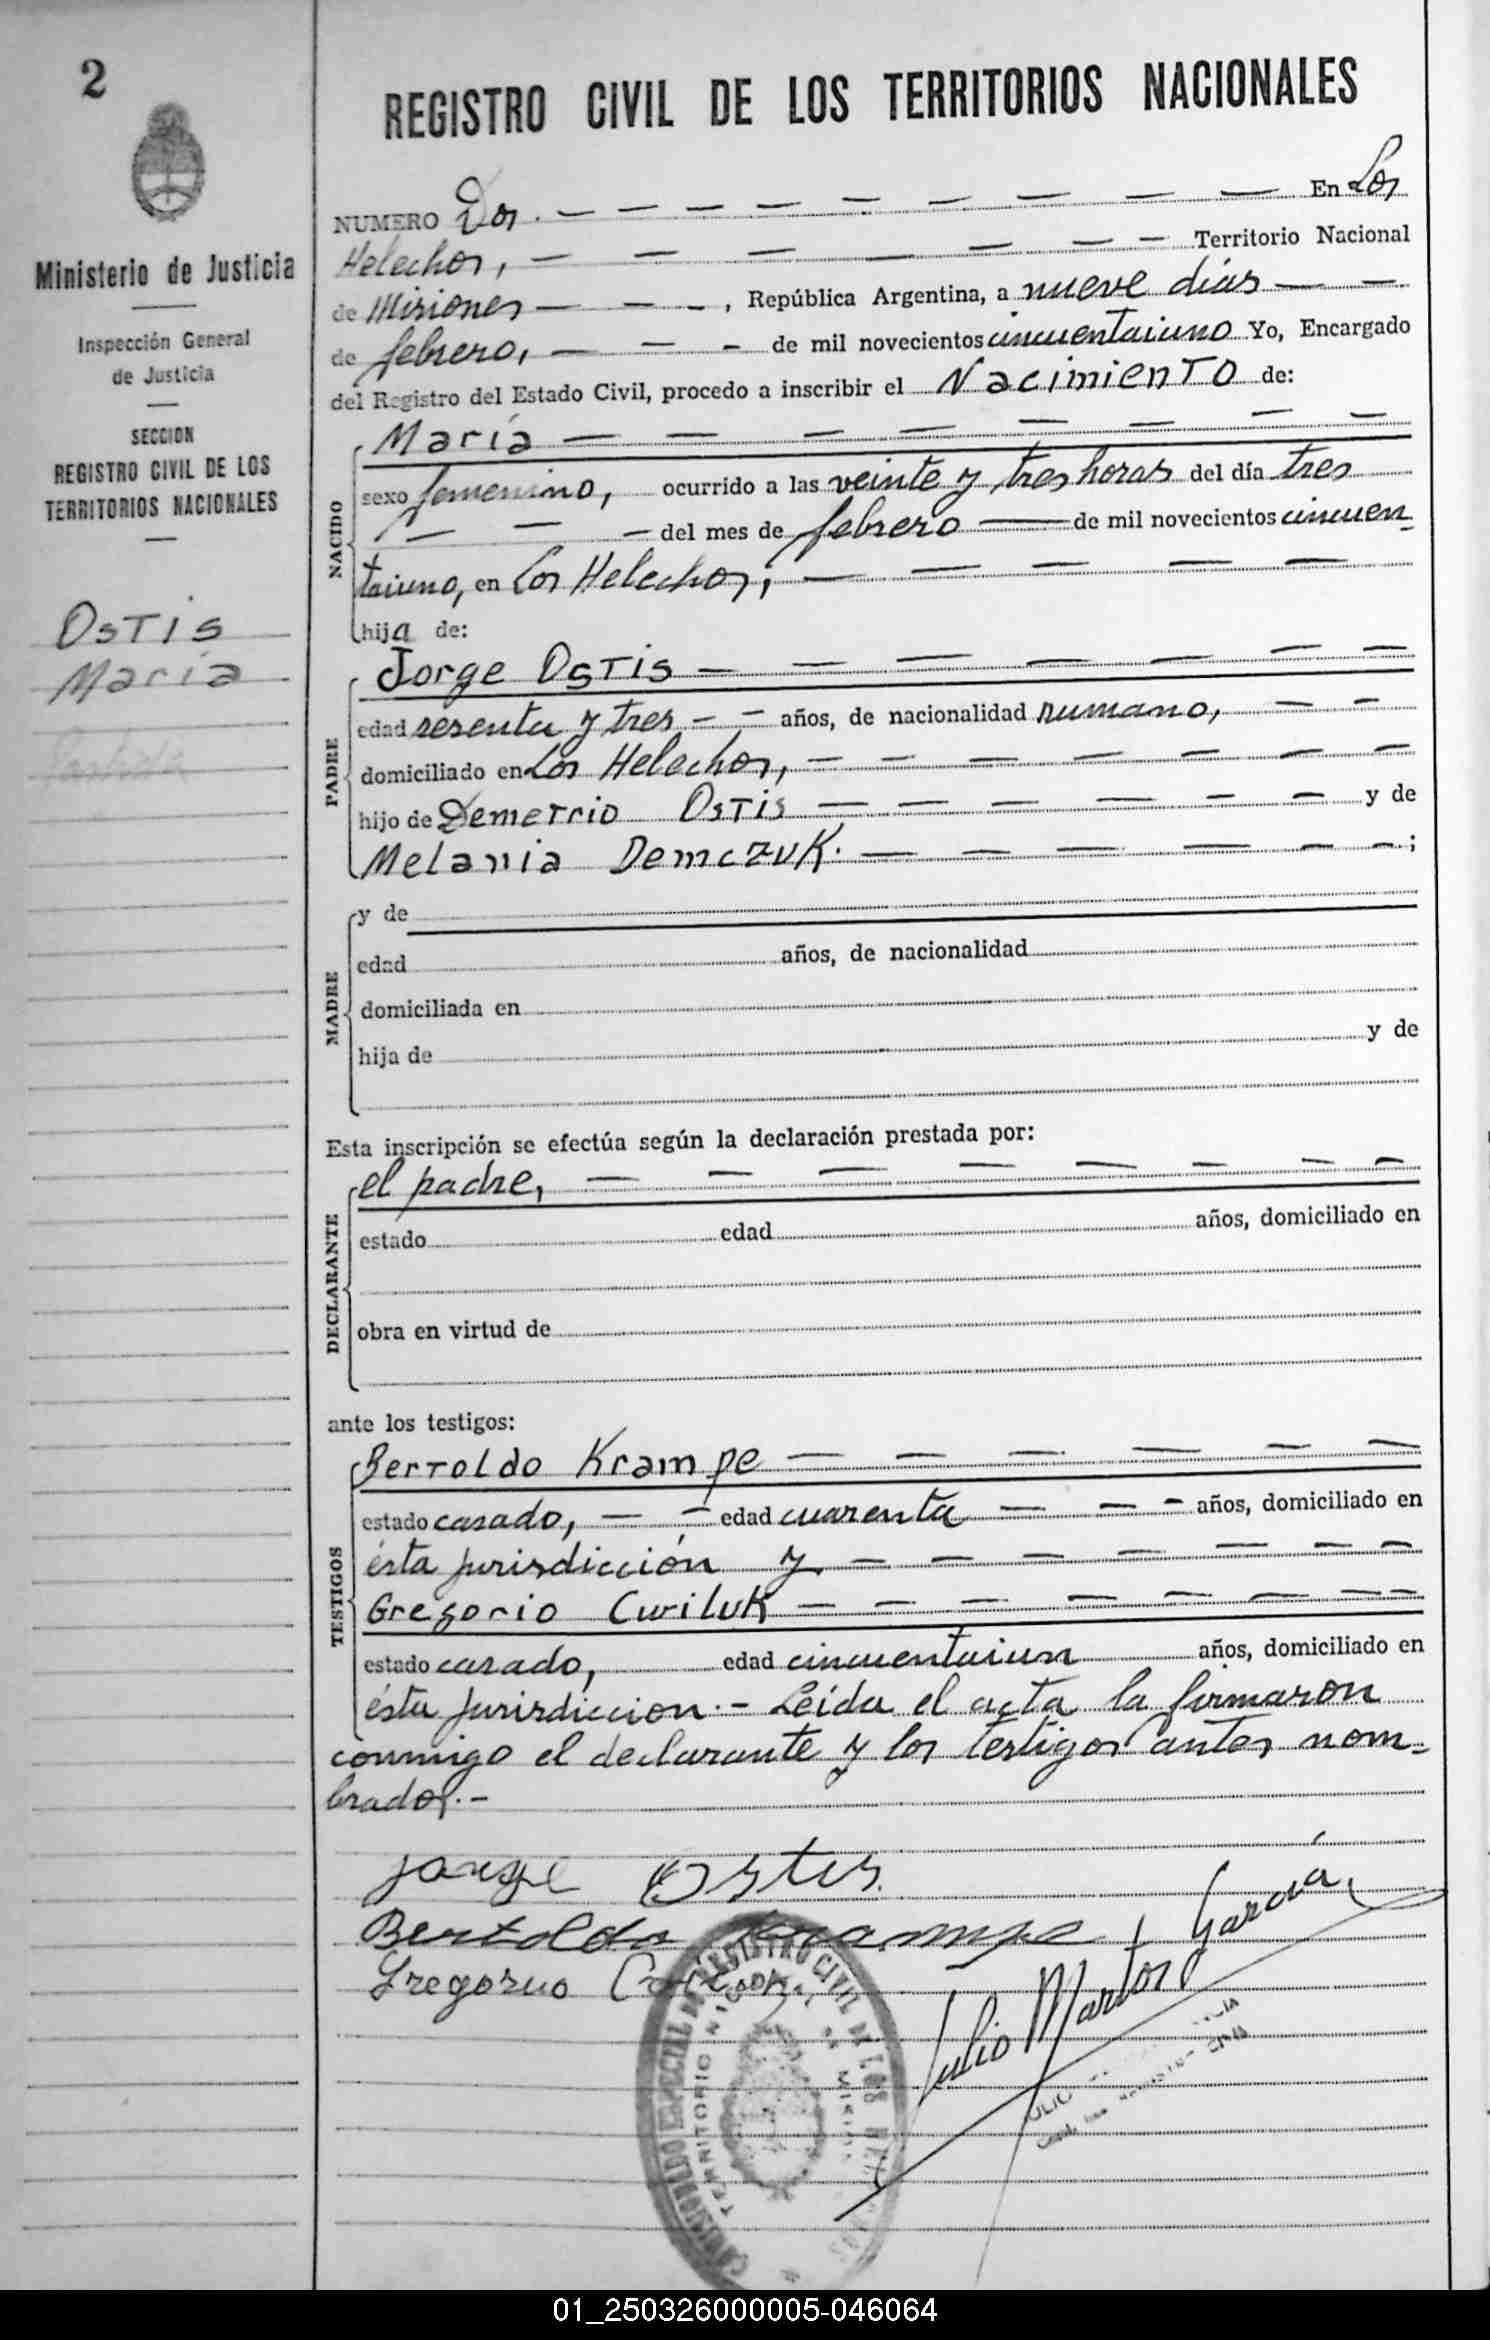 2
Ministerio de Justicia
Inspección General
de Justicia
SECCION
REGISTRO CIVIL DE LOS
TERRITORIOS NACIONALES
OSTIS
María
REGISTRO CIVIL DE LOS TERRITORIOS NACIONALES
NUMERO Dos. — — — — — — — — — En Los
Helechos, — — — — — — Territorio Nacional
de Misiones — — — , República Argentina, a nueve días — —
de febrero, — — — de mil novecientos cincuentaiuno Yo, Encargado
del Registro del Estado Civil, procedo a inscribir el Nacimiento de:
NACIDO
María — — — — — — — —
sexo femenino, ocurrido a las veinte y tres horas del día tres
— — — del mes de febrero — de mil novecientos cincuen-
taiuno, en Los Helechos, — — — — —
hija de:
PADRE
Jorge OSTIS — — — — — — —
edad sesenta y tres — — años, de nacionalidad rumano, — —
domiciliado en Los Helechos, — — — — — — — —
hijo de Demetrio OSTIS — — — — — — y de
Melania DemczuK. — — — — — — ;
MADRE
y de
edad años, de nacionalidad
domiciliada en
hija de y de
Esta inscripción se efectúa según la declaración prestada por:
DECLARANTE
el padre, — — — — — — — —
estado edad años, domiciliado en
obra en virtud de
ante los testigos:
TESTIGOS
Bertoldo Krampe — — — — — —
estado casado, — — edad cuarenta — — — años, domiciliado en
ésta jurisdicción y — — — — — — —
Gregorio CwiluK — — — — — — — —
estado casado, edad cincuentaiun años, domiciliado en
ésta jurisdiccion.- Leida el acta la firmaron
conmigo el declarante y los testigos antes nom-
brados.-
Jorge Ostis.
Bertoldo Krampe
Gregorio
Julio Martos García
REGISTRO CIVIL DE LOS
TERRITORIO
01_250326000005-046064